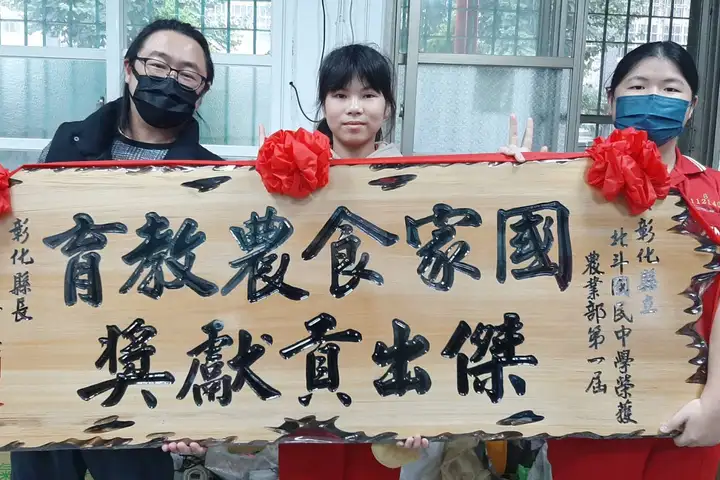 彰化縣立
北斗國民中學榮獲
農業部第一屆
國家食農教育
傑出貢獻獎
彰化縣長